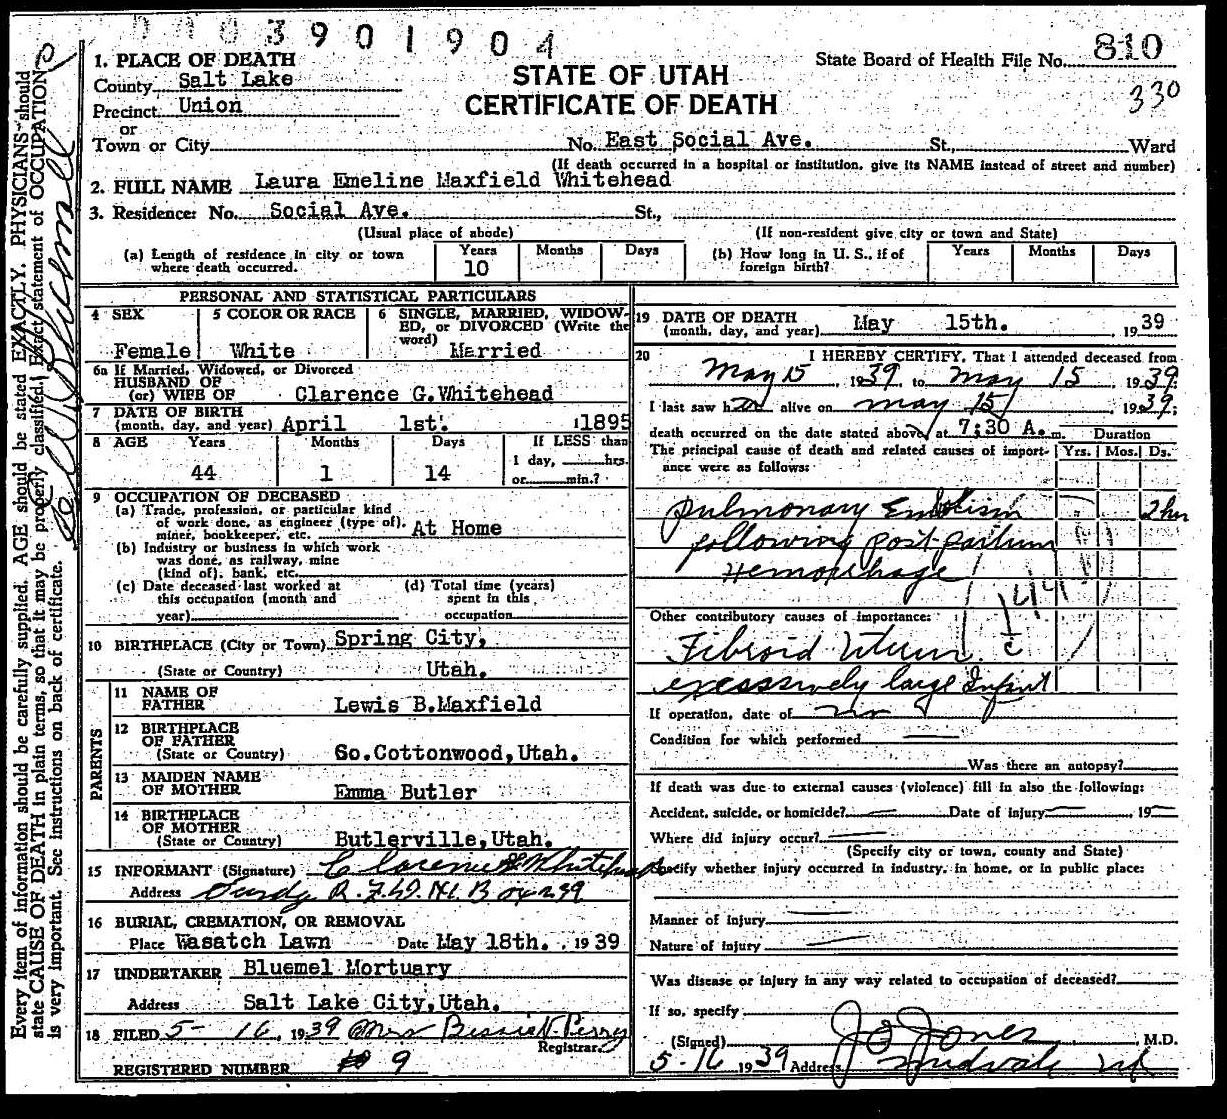 3901904
1. PLACE OF DEATH
County Salt Lake
Precinct Union
or
Town or City
State Board of Health File No. 810
330
STATE OF UTAH
CERTIFICATE OF DEATH
No. East Social Ave. St., Ward
(If death occurred in a hospital or institution, give its NAME instead of street and number)
2. FULL NAME Laura Emeline Maxfield Whitehead
3. Residence: No. Social Ave. St.,
(Usual place of abode) (If non-resident give city or town and State)
(a) Length of residence in city or town where death occurred. Years 10 Months Days
(b) How long in U. S., if of foreign birth? Years Months Days
PERSONAL AND STATISTICAL PARTICULARS
4 SEX Female
5 COLOR OR RACE White
6 SINGLE, MARRIED, WIDOWED, or DIVORCED (Write the word) Married
6a If Married, Widowed, or Divorced
HUSBAND OF
(or) WIFE OF Clarence G.Whitehead
7 DATE OF BIRTH
(month, day, and year) April 1st. 1895
8 AGE Years Months Days If LESS than
44 1 14 1 day, hrs.
or min.?
9 OCCUPATION OF DECEASED
(a) Trade, profession, or particular kind
of work done, as engineer (type of),
miner, bookkeeper, etc. At Home
(b) Industry or business in which work
was done, as railway, mine
(kind of), bank, etc.
(c) Date deceased last worked at
this occupation (month and
year)
(d) Total time (years)
spent in this
occupation
10 BIRTHPLACE (City or Town) Spring City,
(State or Country) Utah.
PARENTS
11 NAME OF
FATHER Lewis B.Maxfield
12 BIRTHPLACE
OF FATHER
(State or Country) So.Cottonwood,Utah.
13 MAIDEN NAME
OF MOTHER Emma Butler
14 BIRTHPLACE
OF MOTHER
(State or Country) Butlerville,Utah.
15 INFORMANT (Signature) Clarence G Whitehead
Address Sandy R.F.D. No. 1 Box 239
16 BURIAL, CREMATION, OR REMOVAL
Place Wasatch Lawn Date May 18th. , 1939
17 UNDERTAKER Bluemel Mortuary
Address Salt Lake City,Utah.
18 FILED 5- 16, 1939 Mrs Bessie N. Perry
Registrar.
REGISTERED NUMBER 9
19 DATE OF DEATH
(month, day, and year) May 15th. , 1939
20 I HEREBY CERTIFY, That I attended deceased from
May 15 , 1939, to May 15 , 1939;
I last saw her alive on May 15 , 1939;
death occurred on the date stated above, at 7:30 A. m. Duration
The principal cause of death and related causes of importance were as follows: Yrs. Mos. Ds.
Pulmonary Embolism 2 hrs
following post-partum
Hemorrhage
144
c
Other contributory causes of importance:
Fibroid Uterus
excessively large Infant
If operation, date of no
Condition for which performed
Was there an autopsy?
If death was due to external causes (violence) fill in also the following:
Accident, suicide, or homicide? Date of injury , 19
Where did injury occur?
(Specify city or town, county and State)
Specify whether injury occurred in industry, in home, or in public place:
Manner of injury
Nature of injury
Was disease or injury in any way related to occupation of deceased?
If so, specify
(Signed) J O Jones , M.D.
5-16 1939 Address Midvale Ut
Every item of information should be carefully supplied. AGE should be stated EXACTLY. PHYSICIANS should
state CAUSE OF DEATH in plain terms, so that it may be properly classified. Exact statement of OCCUPATION
is very important. See instructions on back of certificate.